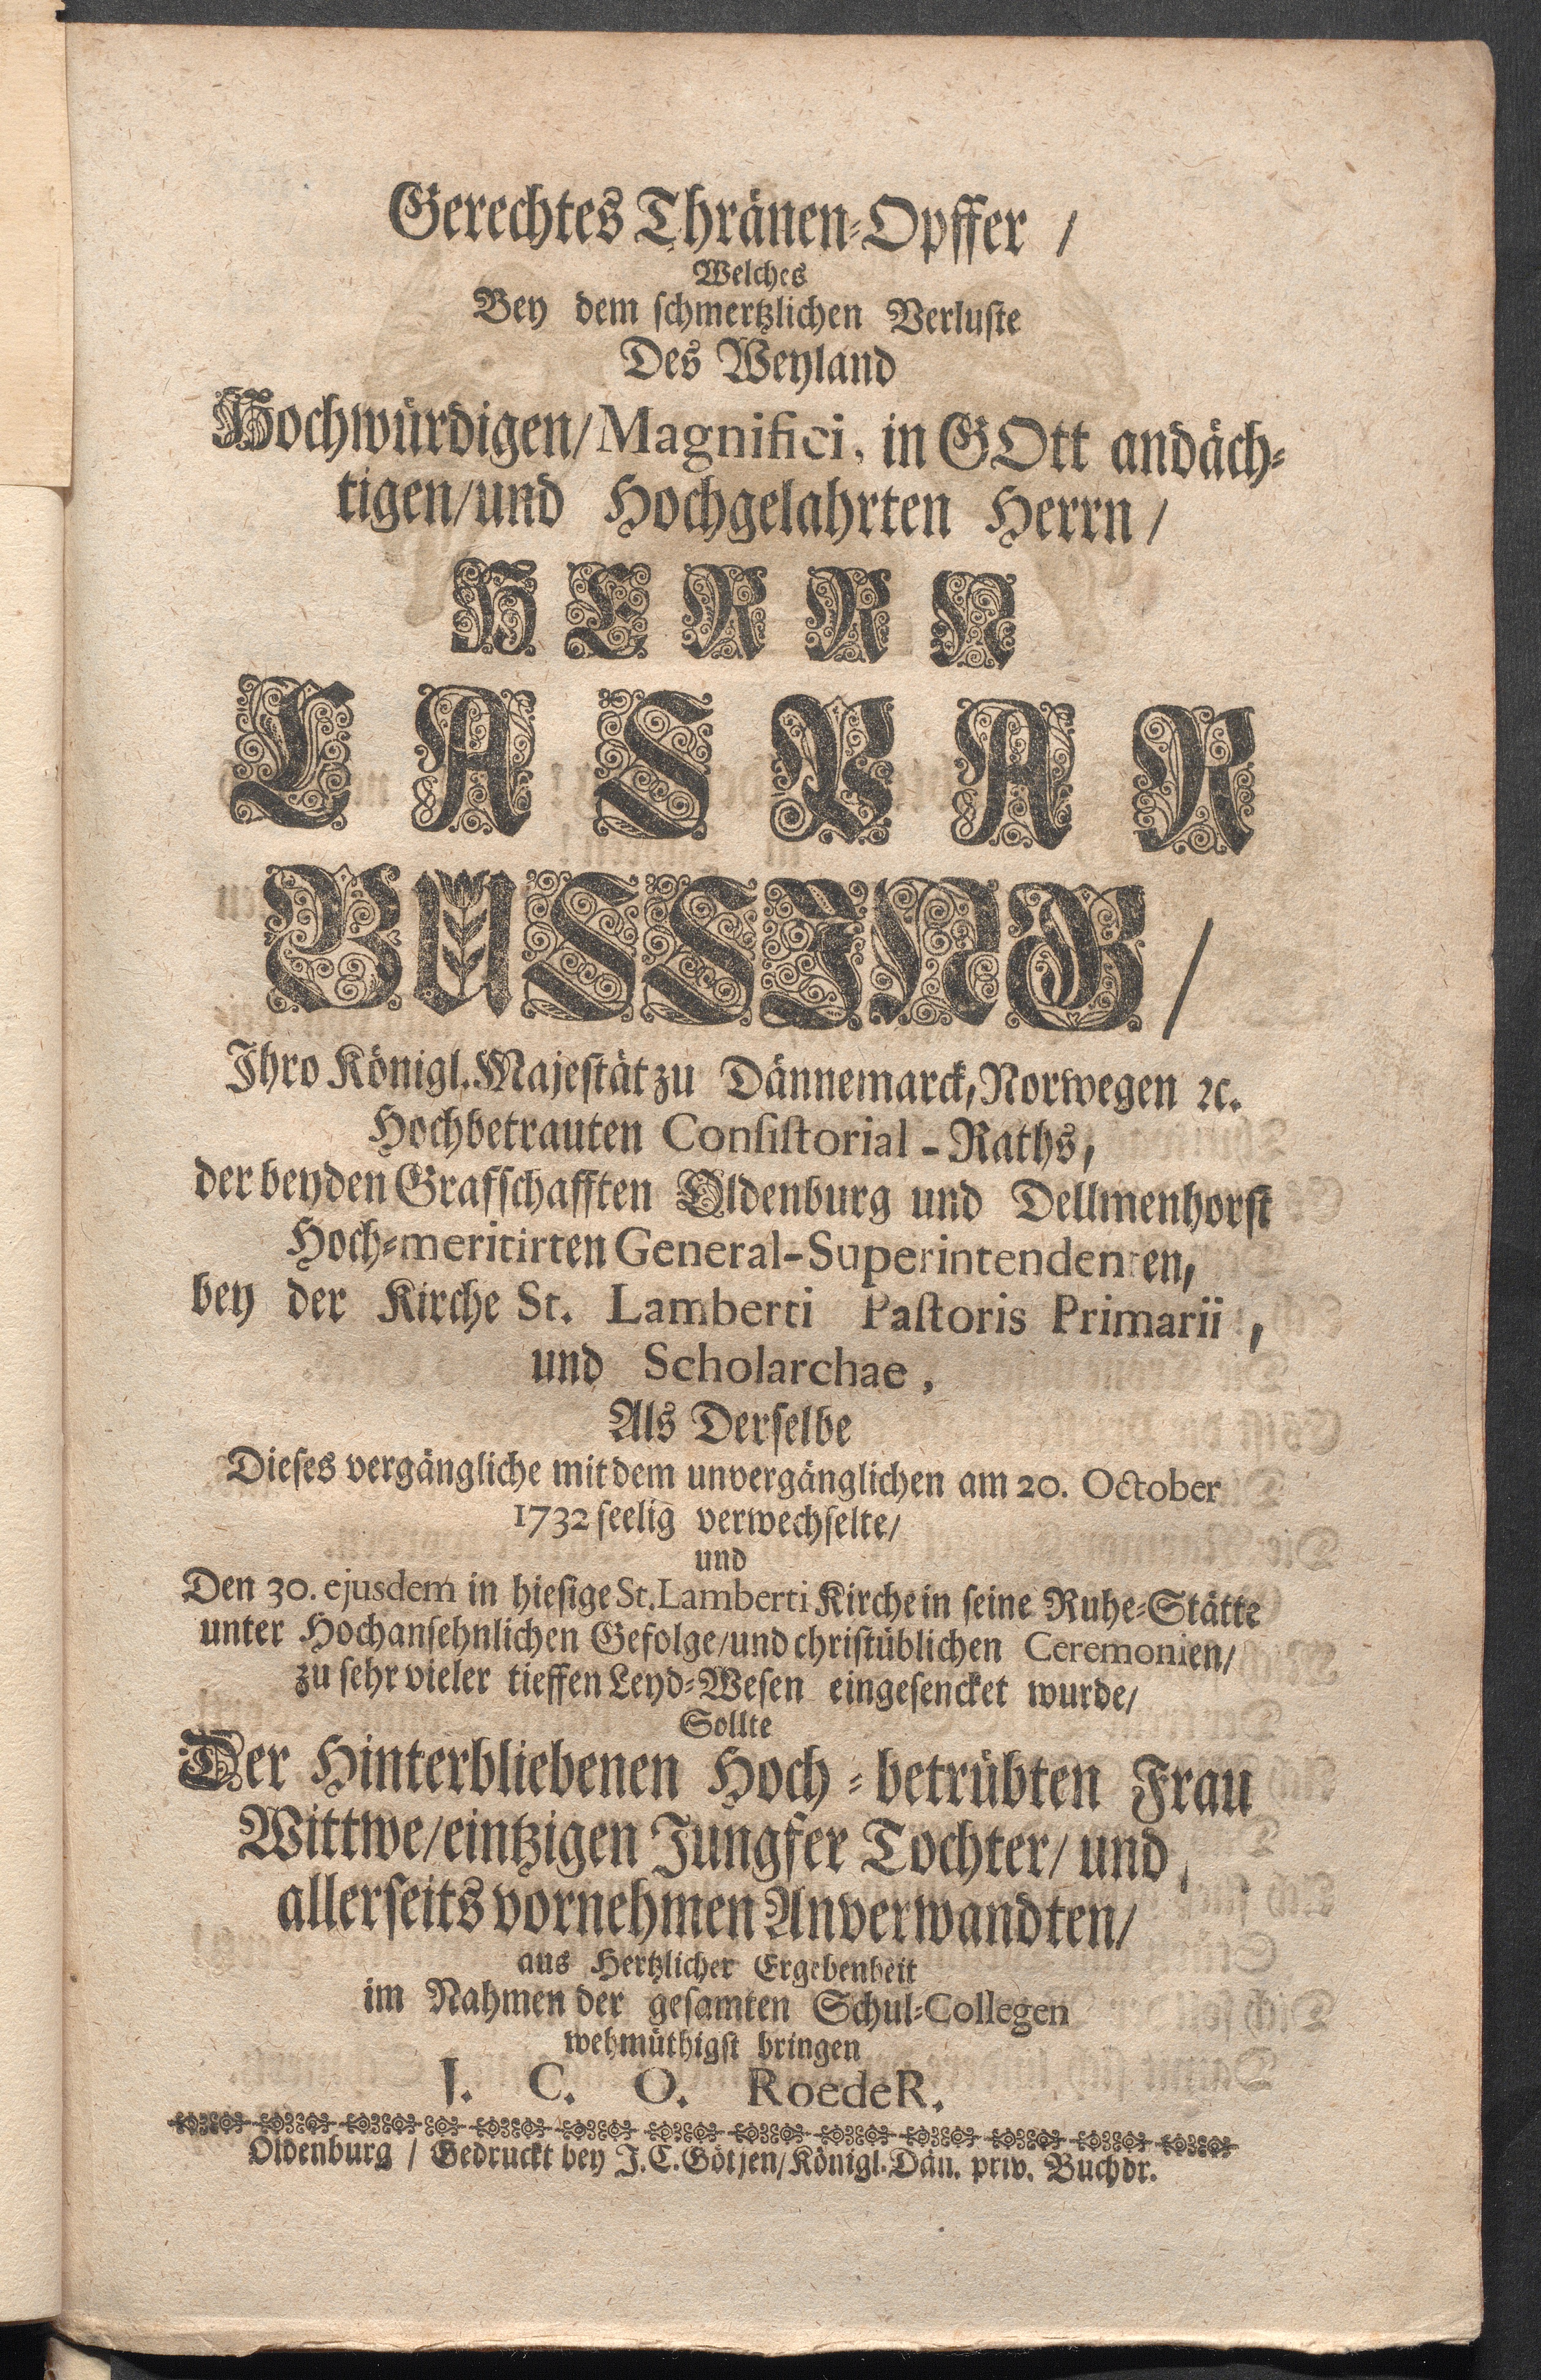 Gerechtes Thränen-Opffer /
Welches
Bey dem schmertzlichen Verluste
Des Weyland
Hochwürdigen/ Magnifici, in GOtt andäch-
tigen/und Hochgelahrten Herrn/
HERRN
CASPAR
BUSSING/
Ihro Königl. Majestät zu Dännemarck, Norwegen ꝛc.
Hochbetrauten Consistorial-Raths,
der beyden Grafschafften Oldenburg und Dellmenhorst
Hoch-meritirten General-Superintendenten,
bey der Kirche St. Lamberti Pastoris Primarii,
und Scholarchae,
Als Derselbe
Dieses vergängliche mit dem unvergänglichen am 20. October
1732 seelig verwechselte/
und
Den 30. ejusdem in hiesige St. Lamberti Kirche in seine Ruhe-Stätte
unter Hochansehnlichen Gefolge/und christüblichen Ceremonien/
zu sehr vieler tieffen Leyd-Wesen eingesencket wurde/
Sollte
Der Hinterbliebenen Hoch-betrübten Frau
Wittwe/eintzigen Jungfer Tochter/ und
allerseits vornehmen Anverwandten/
aus Hertzlicher Ergebenheit
im Nahmen der gesamten Schul-Collegen
wehmüthigst bringen
J. C. O. RoedeR.
Oldenburg / Gedruckt bey J. C. Götjen/ Königl. Dän. priv. Buchdr.